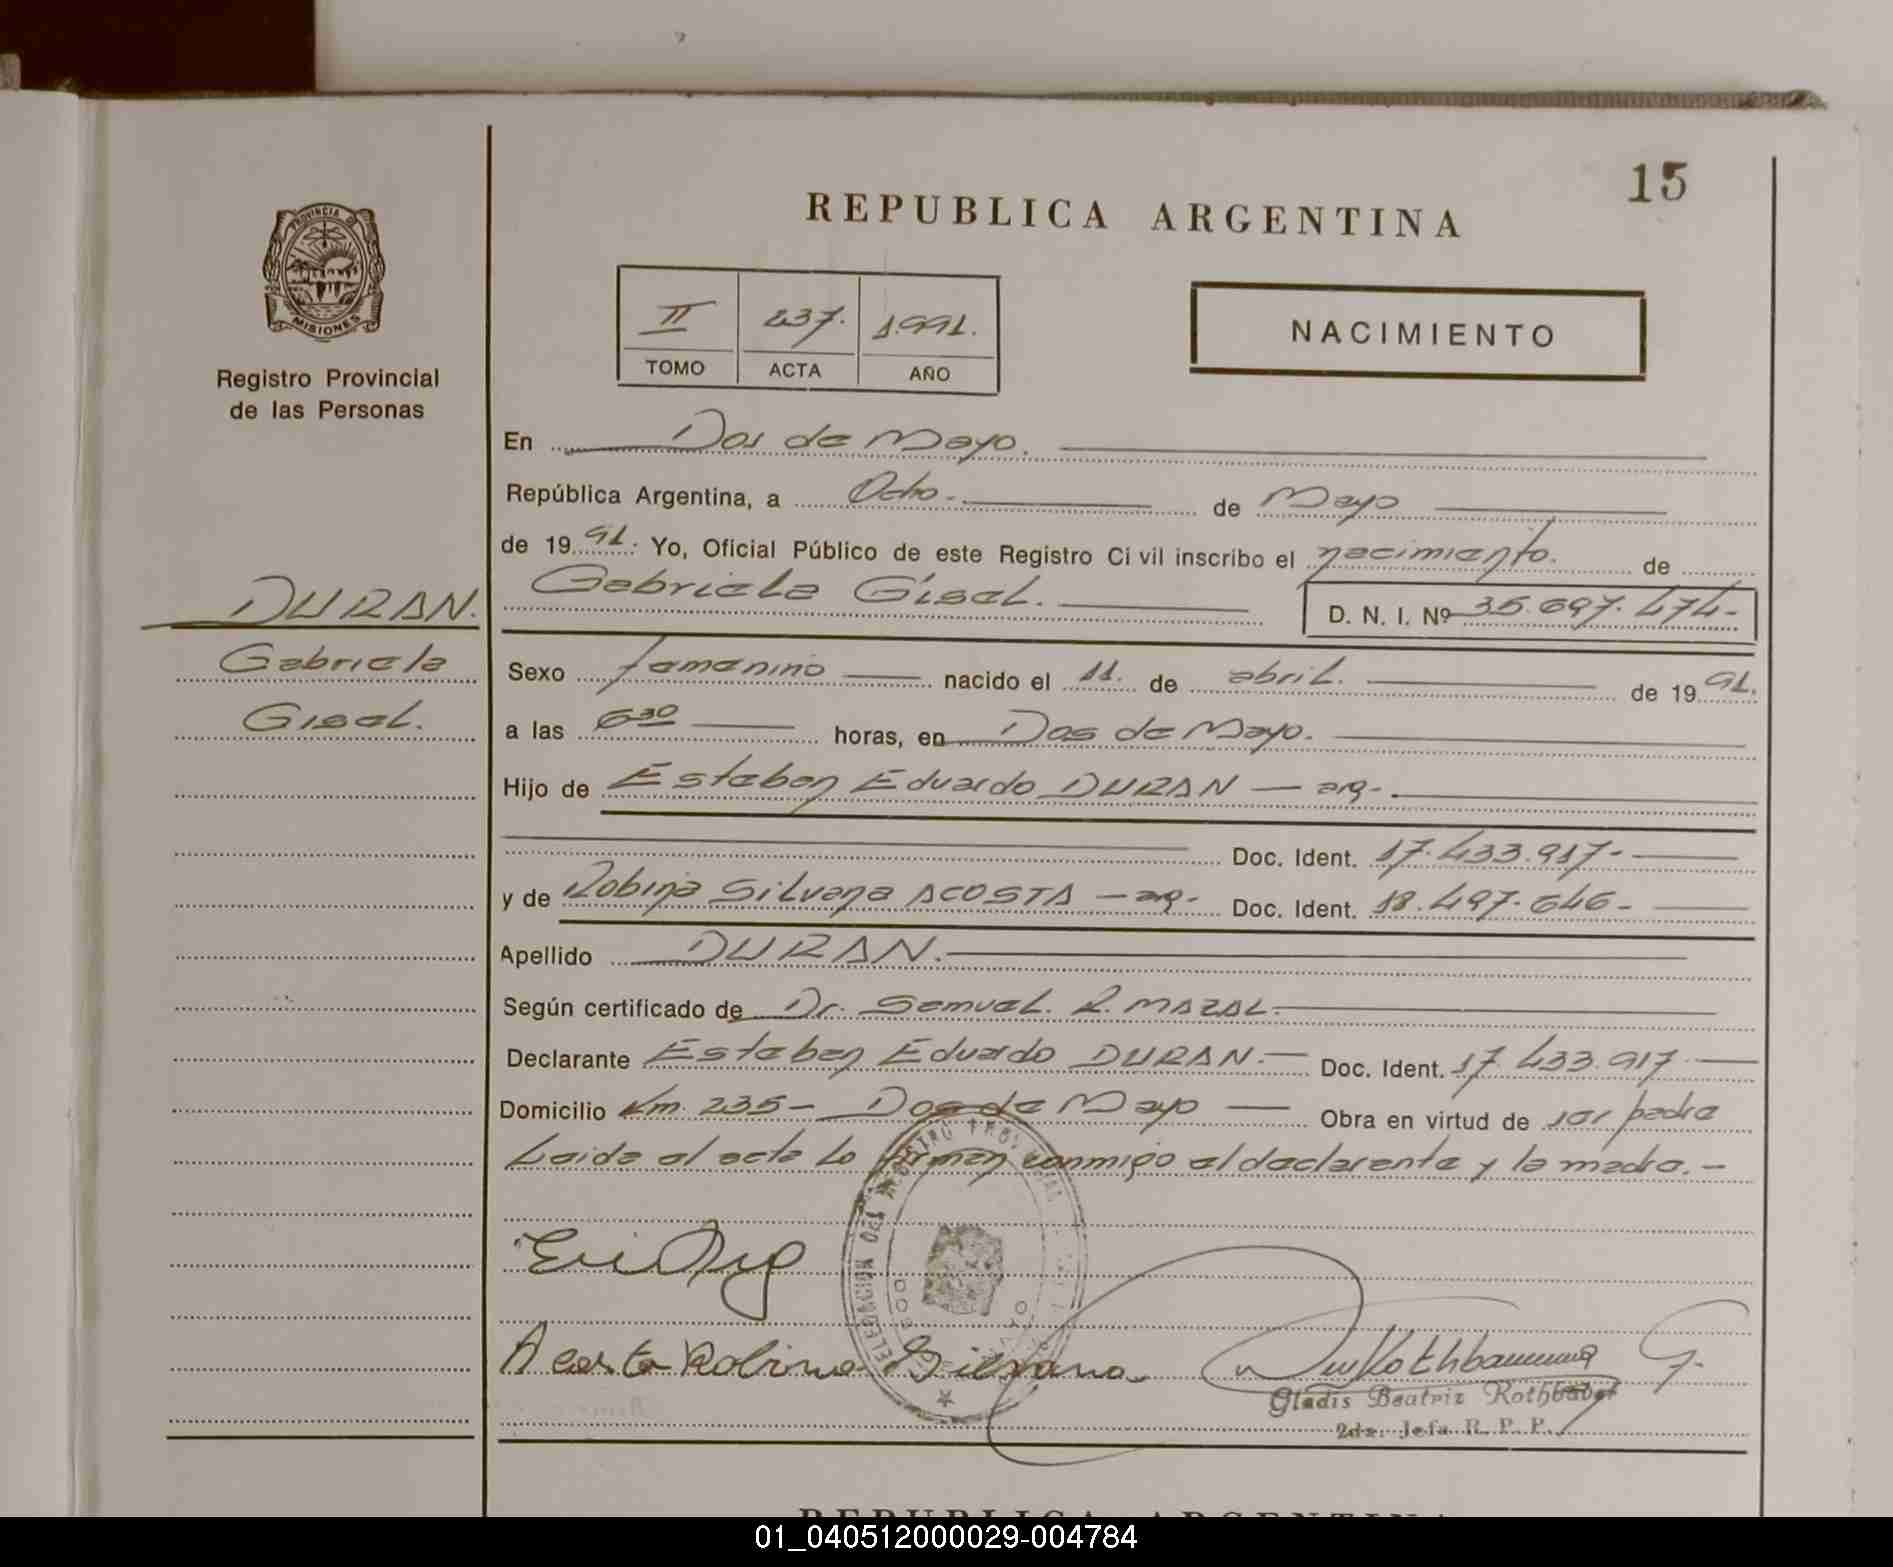 15
REPUBLICA ARGENTINA
PROVINCIA DE
MISIONES
Registro Provincial
de las Personas
II 237. 1.991.
TOMO ACTA AÑO
NACIMIENTO
En Dos de Mayo.
República Argentina, a Ocho. de Mayo
de 1991. Yo, Oficial Público de este Registro Civil inscribo el nacimiento. de
Gabriela Gisel.
D. N. I. Nº 35.697.474-
DURAN.
Gabriela
Gisel.
Sexo femenino nacido el 11. de abril. de 1991.
a las 6 30 horas, en Dos de Mayo.
Hijo de Esteban Eduardo DURAN — arg-.
Doc. Ident. 17.433.917-
y de Robina Silvana ACOSTA — arg- Doc. Ident. 18.497.646-
Apellido DURAN.
Según certificado de Dr. Samuel. R. MAZAL.
Declarante Esteban Eduardo DURAN.— Doc. Ident. 17.433.917
Domicilio Km. 235- Dos de Mayo — Obra en virtud de ser padre
Leida el acta lo firman conmigo el declarante y la madre.-
Acosta Robina Silvana
Gladis Beatriz
2da. Jefa R. P. P.
REPUBLICA ARGENTINA
01_040512000029-004784